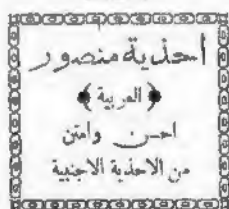 أحذية منصور
﴿ العربية ﴾
احسن وامتن
من الاحذية الاجنبية